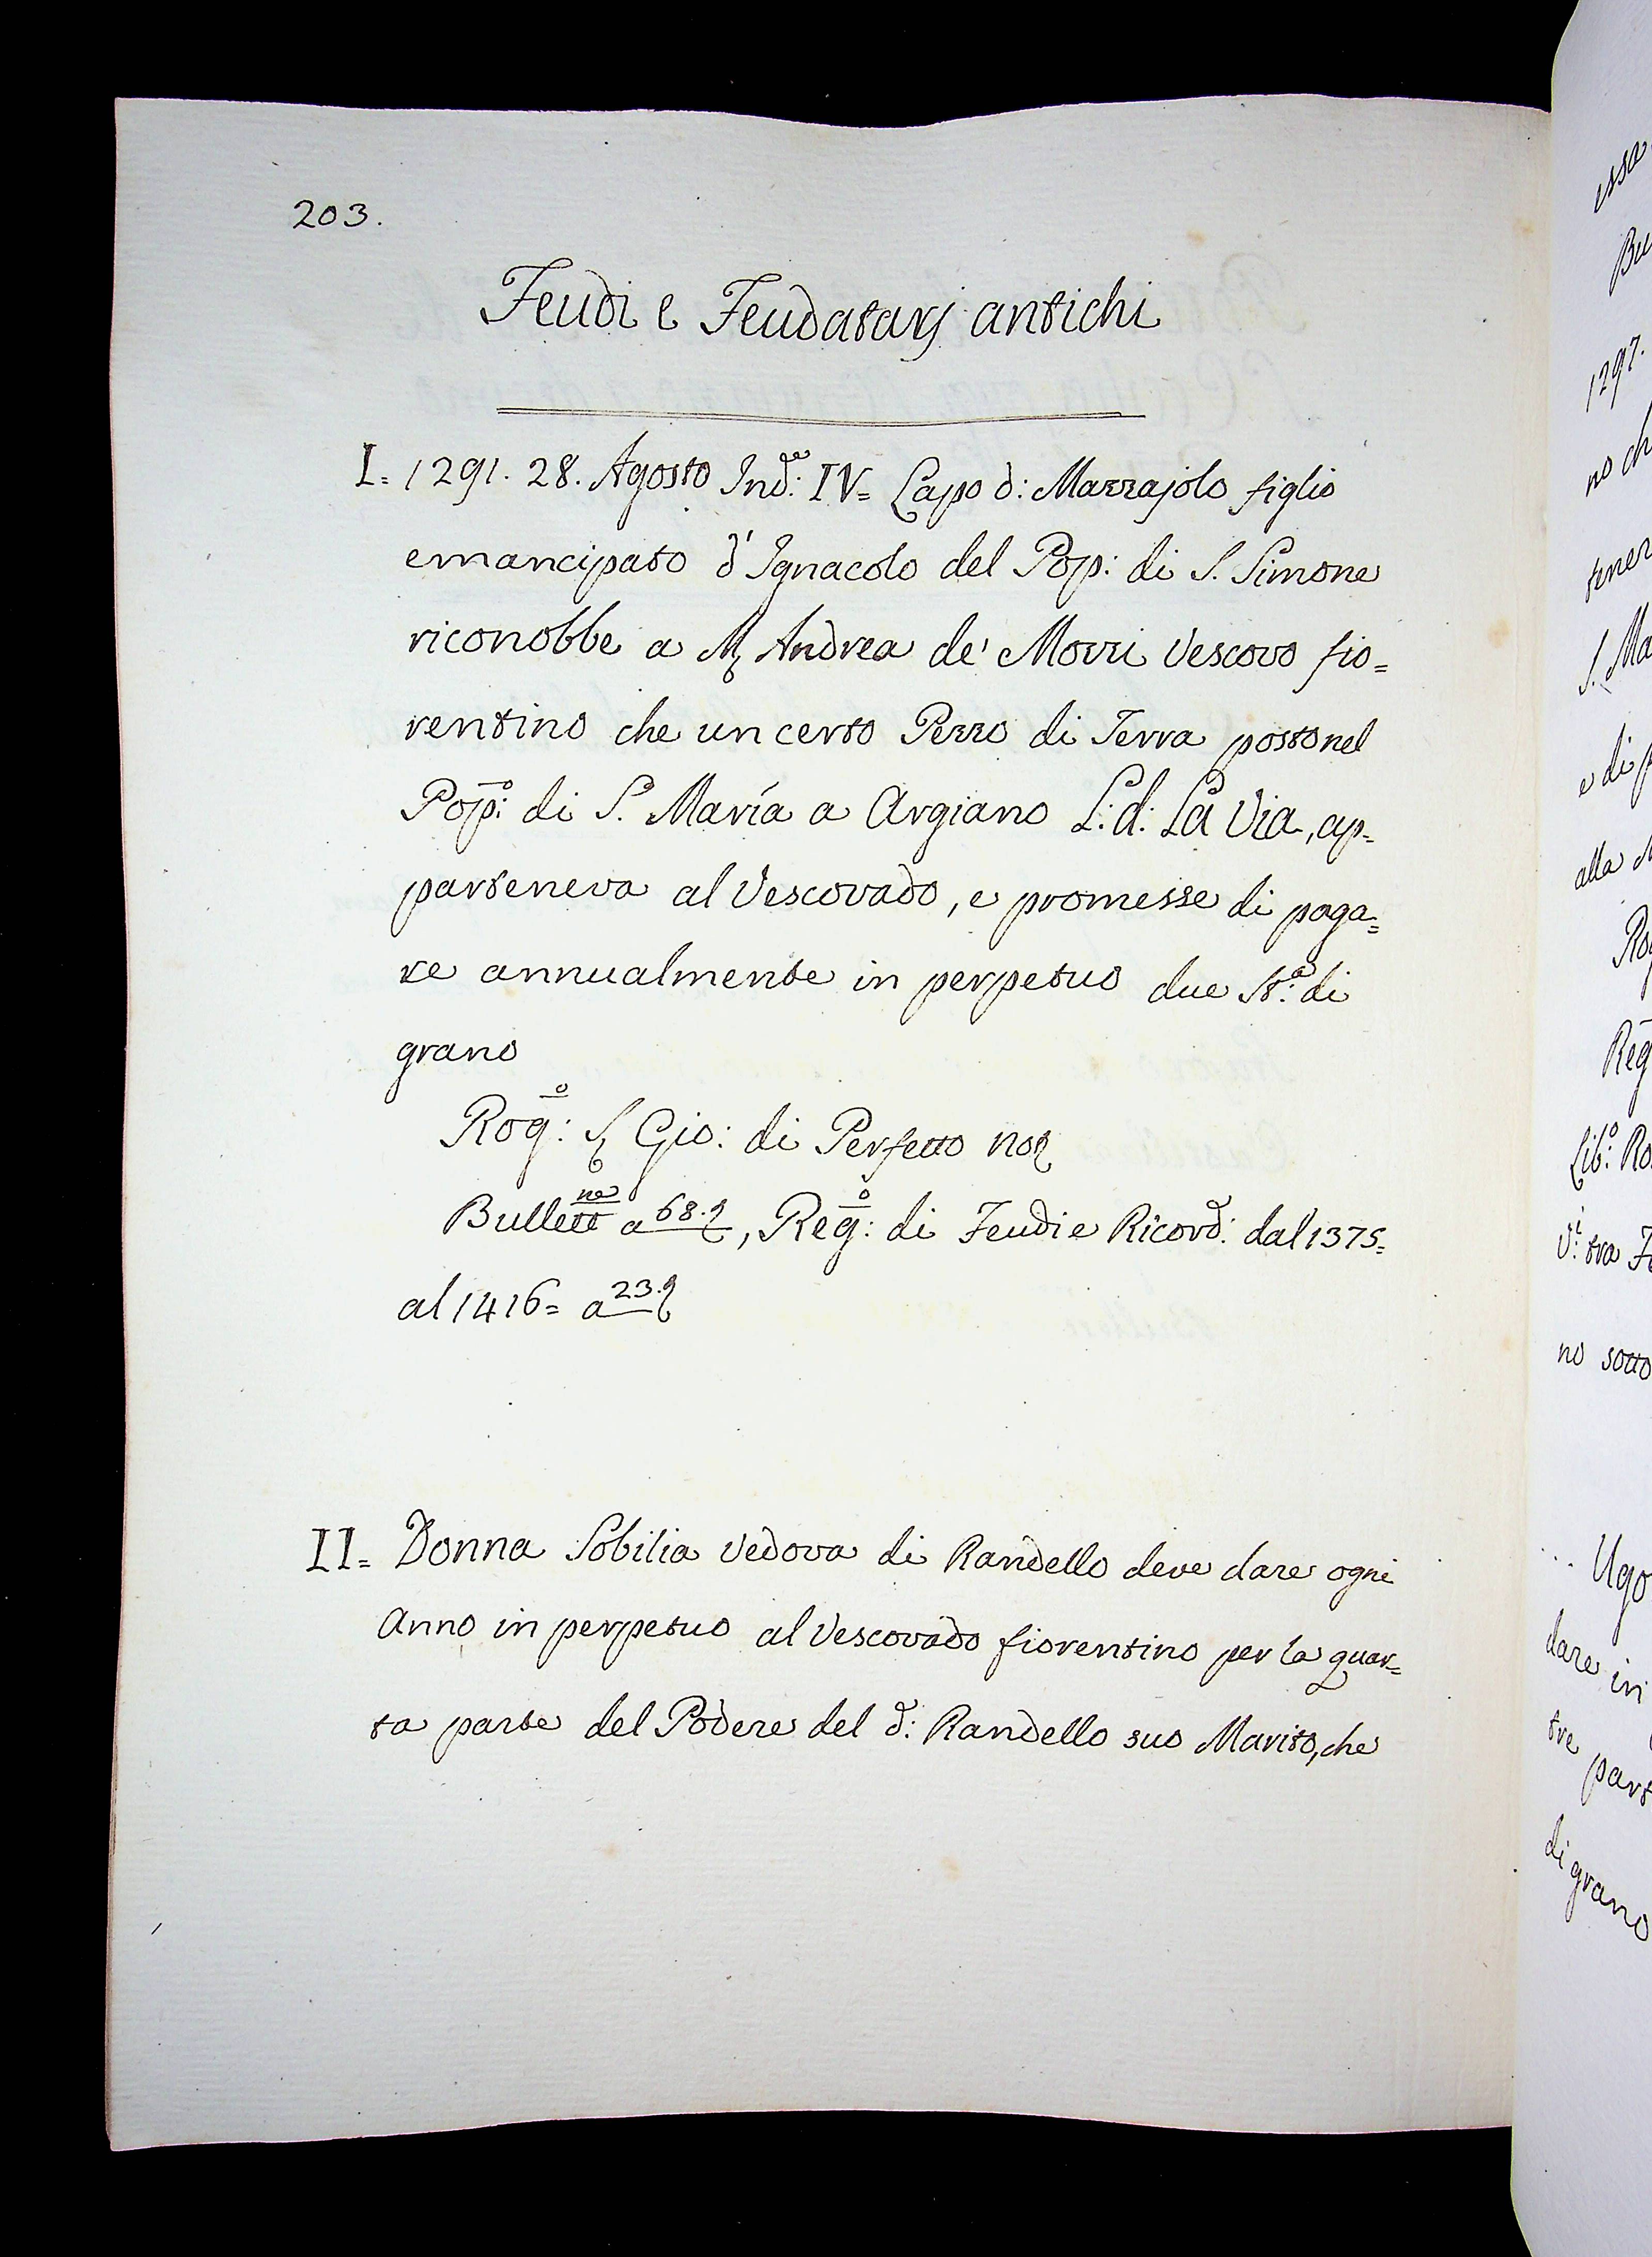 203.
Feudi e Feudatarj antichi
I= 1291. 28. Agosto Ind:ᵉ IV= Lapo d: Mazzajolo figlio
emancipato d'Ignacolo del Pop: di S. Simone
riconobbe a M Andrea de' Mozzi Vescovo fio=
rentino che un certo Pezzo di Terra posto nel
Pop:º di S. María a Argiano L: d: La Via, ap=
parteneva al Vescovado, e promesse di paga=
re annualmente in perpetuo due St:ª di
grano
Rog:º S Gio: di Perfetto not
Bullettne a 68., Reg:º di Feudi e Ricord: dal 1375=
al 1416= a 23.
II= Donna Sobilia Vedova di Randello deve dare ogni
Anno in perpetuo al Vescovado fiorentino per la quar=
ta parte del Podere del d: Randello suo Marito, che
essa
Bu
1297.
no ch
tener
S. Ma
e di p
alla
Ro
Reg
Lib:º Ro
V:ⁱ tra Fe
no sotto
Ugo
dare in
tre part
di grano